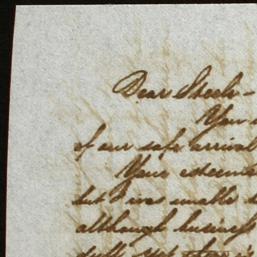 Dear Steele -
Your
of our safe arrival
Your esteemed
but I was unable
although business